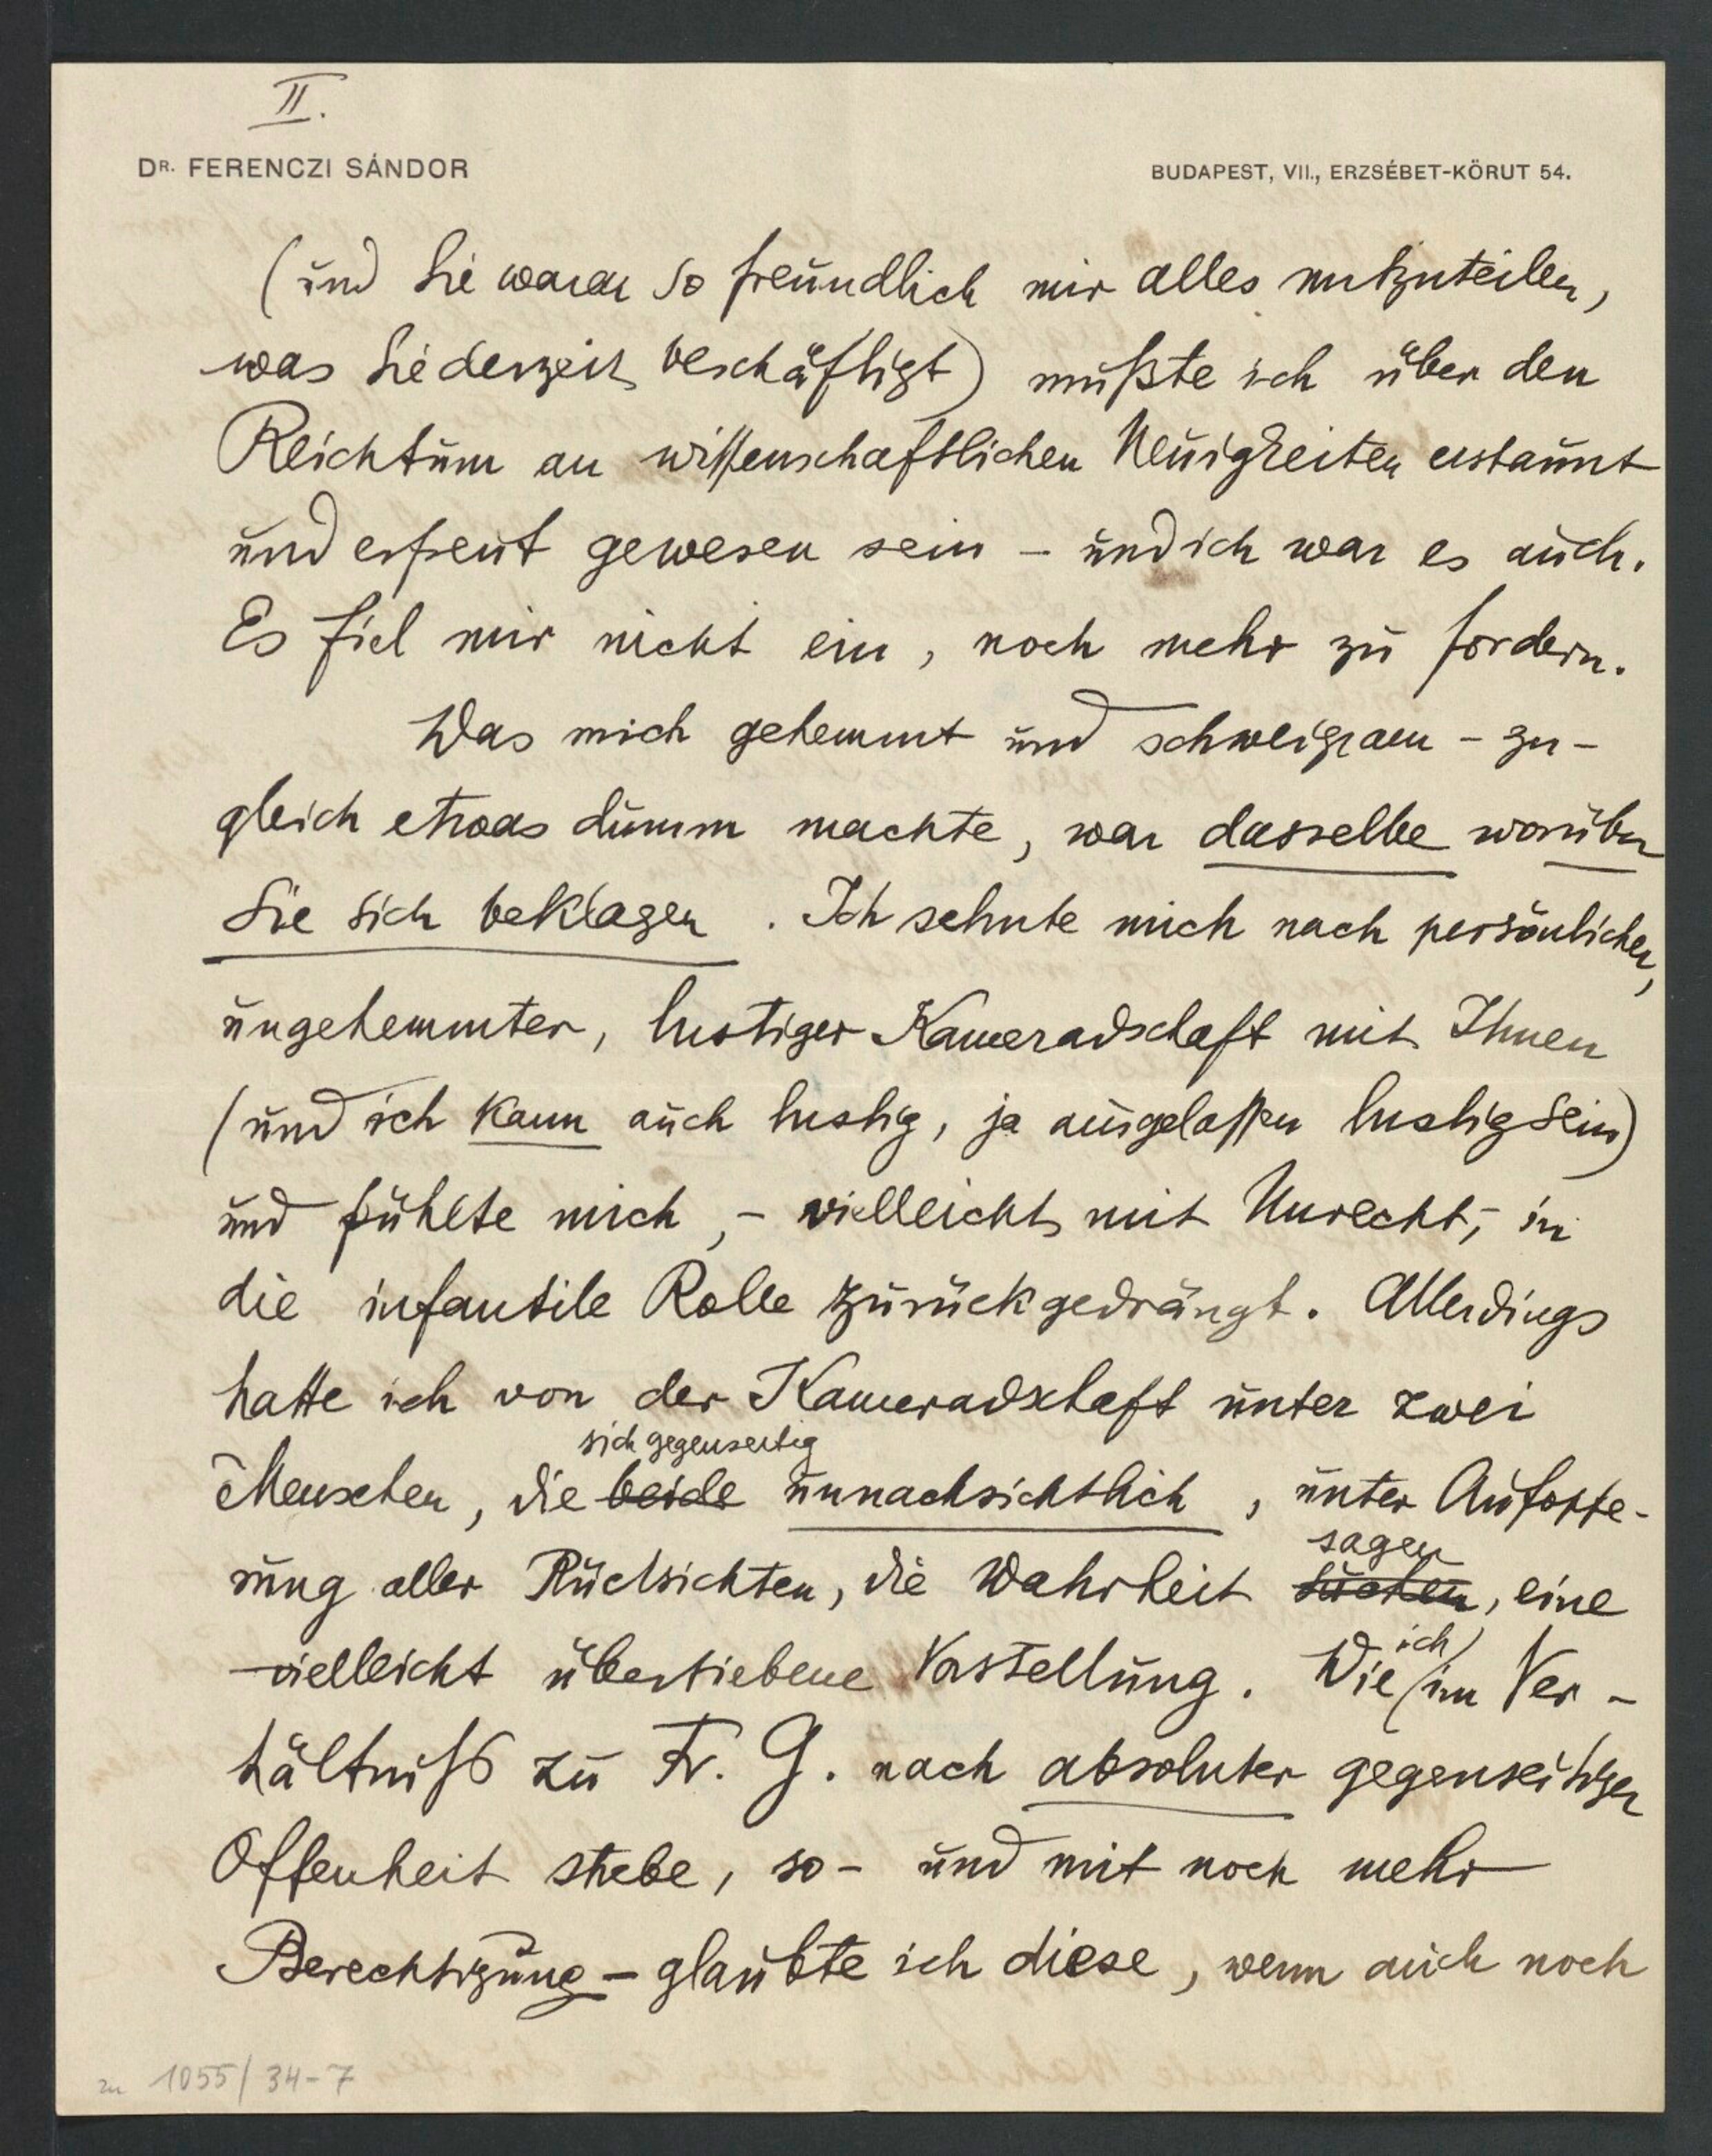 II.
DR. FERENCZI SÁNDOR
BUDAPEST, VII., ERZSÉBET-KÖRUT 54.
(und Sie waren so freundlich mir alles mitzuteilen,
was Sie derzeit beschäftigt) mußte ich über den
Reichtum an wissenschaftlichen Neuigkeiten erstaunt
und erfreut gewesen sein – und ich war es auch.
Es fiel mir nicht ein, noch mehr zu fordern.
Was mich gehemmt und schweigsam – zu-
gleich etwas dumm machte, war dasselbe worüber
Sie sich beklagen. Ich sehnte mich nach persönlicher,
ungehemmter, lustiger Kameradschaft mit Ihnen
(und ich kann auch lustig, ja ausgelassen lustig sein)
und fühlte mich, – vielleicht mit Unrecht, – in
die infantile Rolle zurückgedrängt. Allerdings
hatte ich von der Kameradschaft unter zwei
sich gegenseitig
Menschen, die beide unnachsichtlich, unter Aufopfe-
sagen
rung aller Rücksichten, die Wahrheit suchen, eine
vielleicht übertriebene Vorstellung. Wie ich im Ver-
hältniß zu Fr. G. nach absoluter gegenseitiger
Offenheit strebe, so – und mit noch mehr
Berechtigung – glaubte ich diese, wenn auch noch
zu 1055/34-7